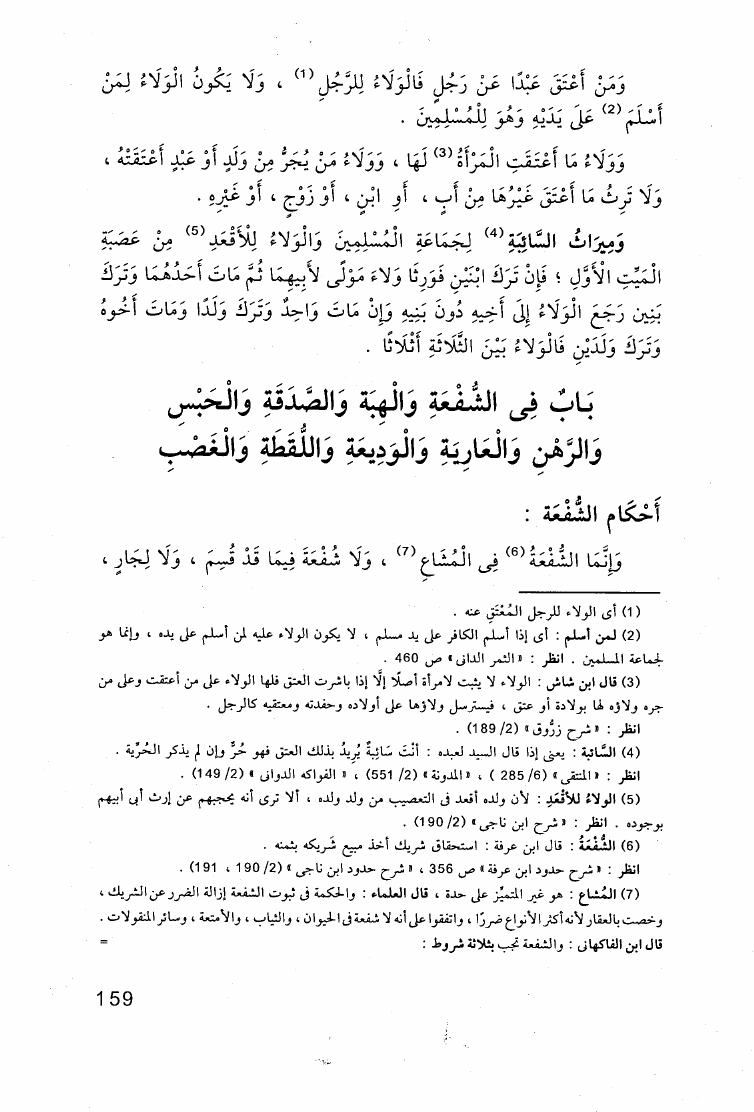 وَمَنْ أَعْتَقَ عَبْدًا عَنْ رَجُلٍ فَالْوَلَاءُ لِلرَّجُلِ (1) ، وَلَا يَكُونُ الْوَلَاءُ لِمَنْ
أَسْلَمَ (2) عَلَى يَدَيْهِ وَهُوَ لِلْمُسْلِمِينَ .
وَوَلَاءُ مَا أَعْتَقَتِ الْمَرْأَةُ (3) لَهَا ، وَوَلَاءُ مَنْ يُجَرُّ مِنْ وَلَدٍ أَوْ عَبْدٍ أَعْتَقَتْهُ ،
وَلَا تَرِثُ مَا أَعْتَقَ غَيْرُهَا مِنْ أَبٍ ، أَوِ ابْنٍ ، أَوْ زَوْجٍ ، أَوْ غَيْرِهِ .
وَمِيرَاثُ السَّائِبَةِ (4) لِجَمَاعَةِ الْمُسْلِمِينَ وَالْوَلَاءُ لِلْأَقْعَدِ (5) مِنْ عَصَبَةِ
الْمَيِّتِ الْأَوَّلِ ؛ فَإِنْ تَرَكَ ابْنَيْنِ فَوَرِثَا وَلَاءَ مَوْلًى لِأَبِيهِمَا ثُمَّ مَاتَ أَحَدُهُمَا وَتَرَكَ
بَنِينَ رَجَعَ الْوَلَاءُ إِلَى أَخِيهِ دُونَ بَنِيهِ وَإِنْ مَاتَ وَاحِدٌ وَتَرَكَ وَلَدًا وَمَاتَ أَخُوهُ
وَتَرَكَ وَلَدَيْنِ فَالْوَلَاءُ بَيْنَ الثَّلَاثَةِ أَثْلَاثًا .
بَابٌ فِى الشُّفْعَةِ وَالْهِبَةِ وَالصَّدَقَةِ وَالْحَبْسِ
وَالرَّهْنِ وَالْعَارِيَةِ وَالْوَدِيعَةِ وَاللُّقَطَةِ وَالْغَصْبِ
أَحْكَام الشُّفْعَة :
وَإِنَّمَا الشُّفْعَةُ (6) فِى الْمُشَاعِ (7) ، وَلَا شُفْعَةَ فِيمَا قَدْ قُسِمَ ، وَلَا لِجَارٍ ،
(1) أى الولاء للرجل المُعْتَقِ عنه .
(2) لمن أسلم : أى إذا أسلم الكافر على يد مسلم ، لا يكون الولاء عليه لمن أسلم على يده ، وإنما هو
لجماعة المسلمين . انظر : « الثمر الدانى » ص 460 .
(3) قال ابن شاش : الولاء لا يثبت لامرأة أصلًا إلَّا إذا باشرت العتق فلها الولاء على من أعتقت وعلى من
جره ولاؤه لها بولادة أو عتق ، فيسترسل ولاؤها على أولاده وحفدته ومعتقيه كالرجل .
انظر : « شرح زرُّوق » (2/ 189) .
(4) السَّائبة : يعنى إذا قال السيد لعبده : أنْتَ سَائِبَةٌ يُرِيدُ بذلك العتق فهو حُرٌّ وإن لم يذكر الحُرِّيَّة .
انظر : « المنتقى » (6/ 285 ) ، « المدونة » (2/ 551) ، « الفواكه الدوانى » (2/ 149) .
(5) الولاءُ للأَقْعَدِ : لأن ولده أقعد فى التعصيب من ولد ولده ، ألا ترى أنه يحجبهم عن إرث أبى أبيهم
بوجوده . انظر : « شرح ابن ناجى » (2/ 190) .
(6) الشُّفْعَةُ : قال ابن عرفة : استحقاق شريك أخذ مبيع شريكه بثمنه .
انظر : « شرح حدود ابن عرفة » ص 356 ، « شرح حدود ابن ناجى » (2/ 190 ، 191) .
(7) المُشاع : هو غير المتميِّز على حدة ، قال العلماء : والحكمة فى ثبوت الشفعة إزالة الضرر عن الشريك ،
وخصت بالعقار لأنه أكثر الأنواع ضررًا ، واتفقوا على أنه لا شفعة فى الحيوان ، والثياب ، والأمتعة ، وسائر المنقولات .
قال ابن الفاكهانى : والشفعة تجب بثلاثة شروط : =
159